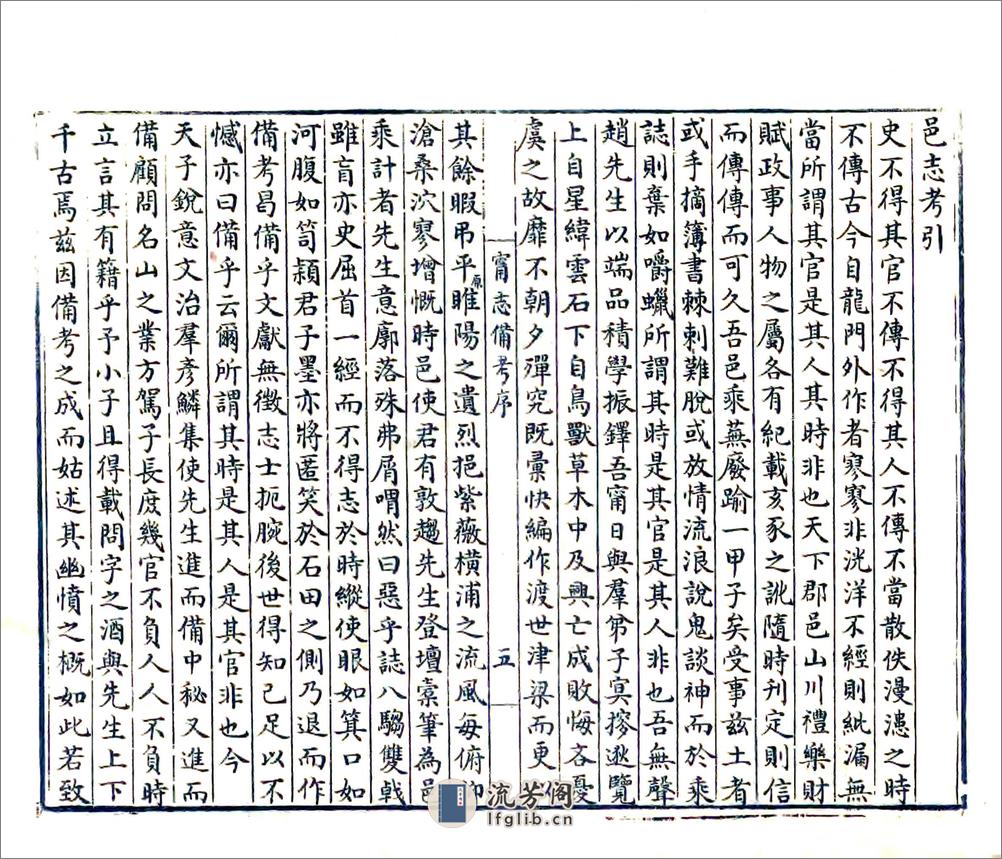 邑志考引
史不得其官不傳不得其人不傳不當散佚漫漶之時
不傳古今自龍門外作者寥寥非洸洋不經則紕漏無
當所謂其官是其人其時非也天下郡邑山川禮樂財
賦政事人物之屬各有紀載亥豕之訛隨時刊定則信
而傳傳而可久吾邑乘蕪廢踰一甲子矣受事茲土者
或手摘簿書棘刺難脫或放情流浪說鬼談神而於乘
誌則棄如嚼蠟所謂其時是其官是其人非也吾無聲
趙先生以端品積學振鐸吾甯日與羣弟子冥搜逖覽
上自星緯雲石下自鳥獸草木中及興亡成敗悔吝憂
虞之故靡不朝夕殫究既彙快編作渡世津梁而更
甯志備考序
五
其餘暇弔平原睢陽之遺烈挹紫薇橫浦之流風每俯仰
滄桑泬寥增慨時邑使君有敦趨先生登壇橐筆為邑
乘計者先生意廓落殊弗屑喟然曰惡乎誌八騶雙戟
雖盲亦史屈首一經而不得志於時縱使眼如箕口如
河腹如笥穎君子墨亦將匿笑於石田之側乃退而作
備考昌備乎文獻無徵志士扼腕後世得知己足以不
憾亦曰備乎云爾所謂其時是其人是其官非也今
天子銳意文治羣彥鱗集使先生進而備中秘又進而
備顧問名山之業方駕子長庋幾官不負人人不負時
立言其有籍乎予小子且得載問字之酒與先生上下
千古焉茲因備考之成而姑述其幽憤之概如此若致
流芳阁
lfglib.cn